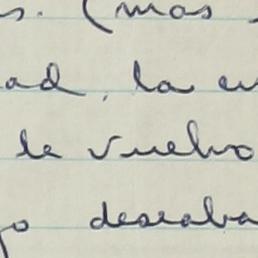 s. (mas
ad, la en
le vuelvo
go deseaba